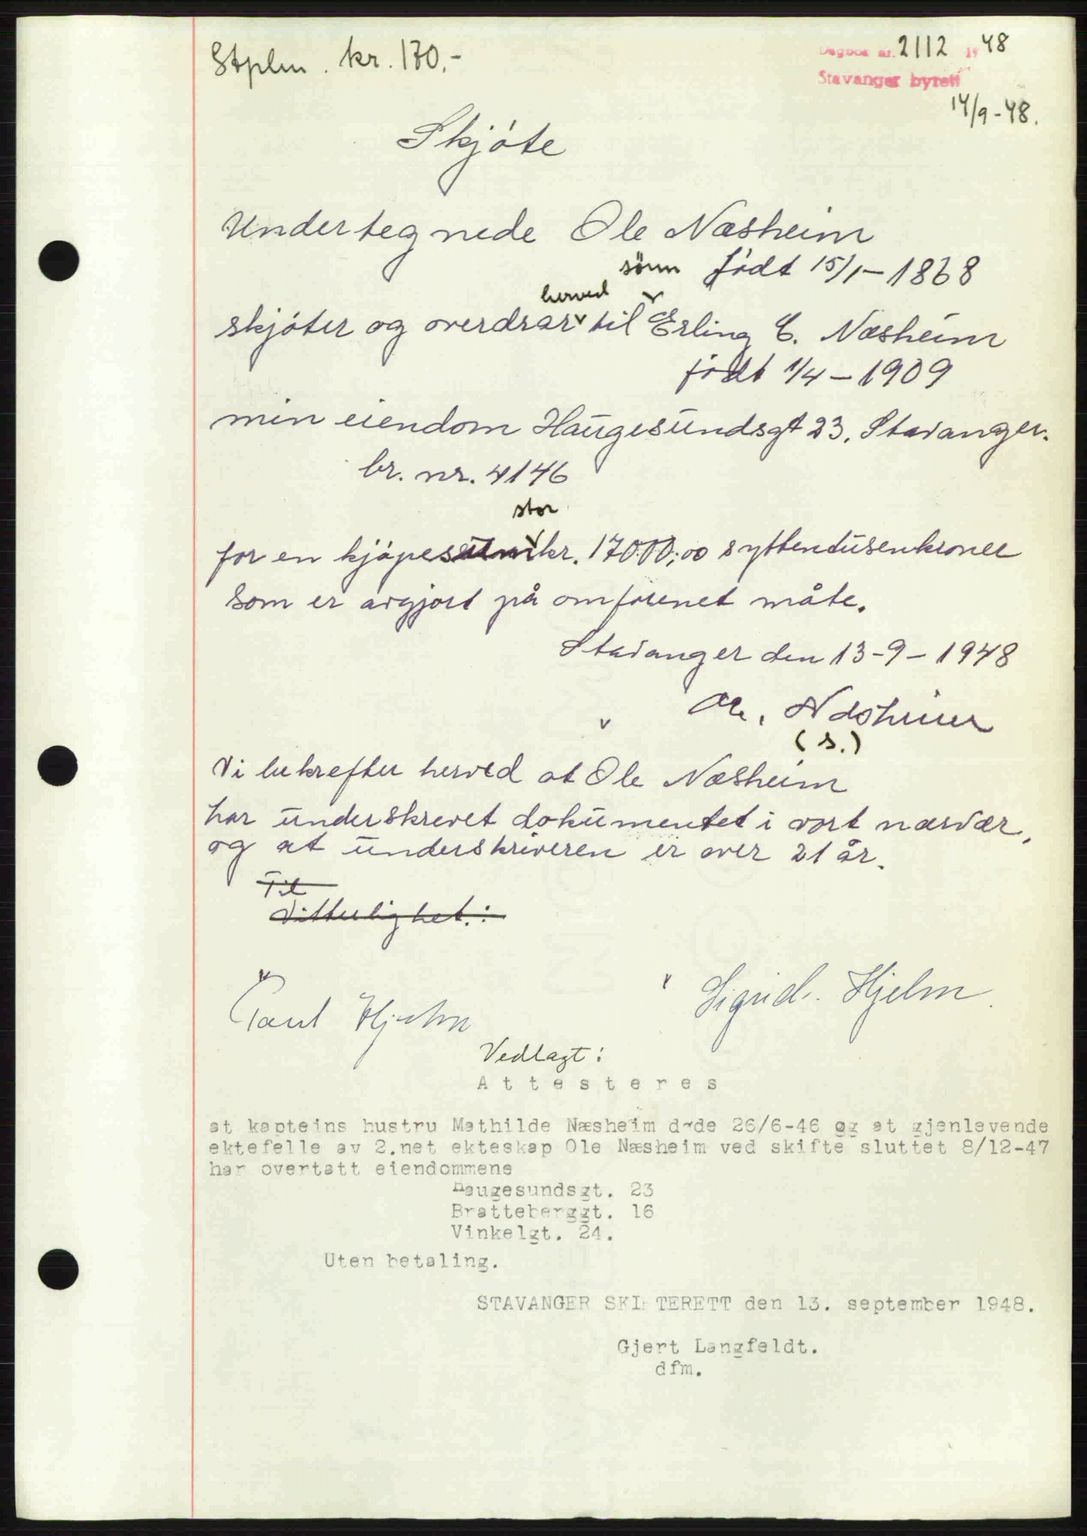 Stplm. kr. 170,-
Dagbok nr. 2112 1948
Stavanger byrett
14/9-48.
Skjóte
Undertegnede Ole Næsheim
sönn født 15/1-1868
herved
skjóter og overdrar til Erling C. Næsheim
født 1/4-1909
min eiendom Haugesundsgt 23, Stavanger.
br. nr. 4146
stor
for en kjópesum kr. 17000,00 syttendusenkroner
som er avgjort på omforenet måte.
Stavanger den 13-9-1948
Ole. Næsheim
(s.)
Vi bekrefter herved at Ole Næsheim
har underskrevet dokumentet i vort nærvær,
og at underskriveren er over 21 år.
Til
Vitterlighet:
Paul Hjelm
Sigrid Hjelm
Vedlagt:
Attesteres
at kapteins hustru Mathilde Næsheim døde 26/6-46 og at gjenlevende
ektefelle av 2.net ekteskap Ole Næsheim ved skifte sluttet 8/12-47
har overtatt eiendommene
Haugesundsgt. 23
Bratteberggt. 16
Vinkelgt. 24.
Uten betaling.
STAVANGER SKIFTERETT den 13. september 1948.
Gjert Langfeldt.
dfm.